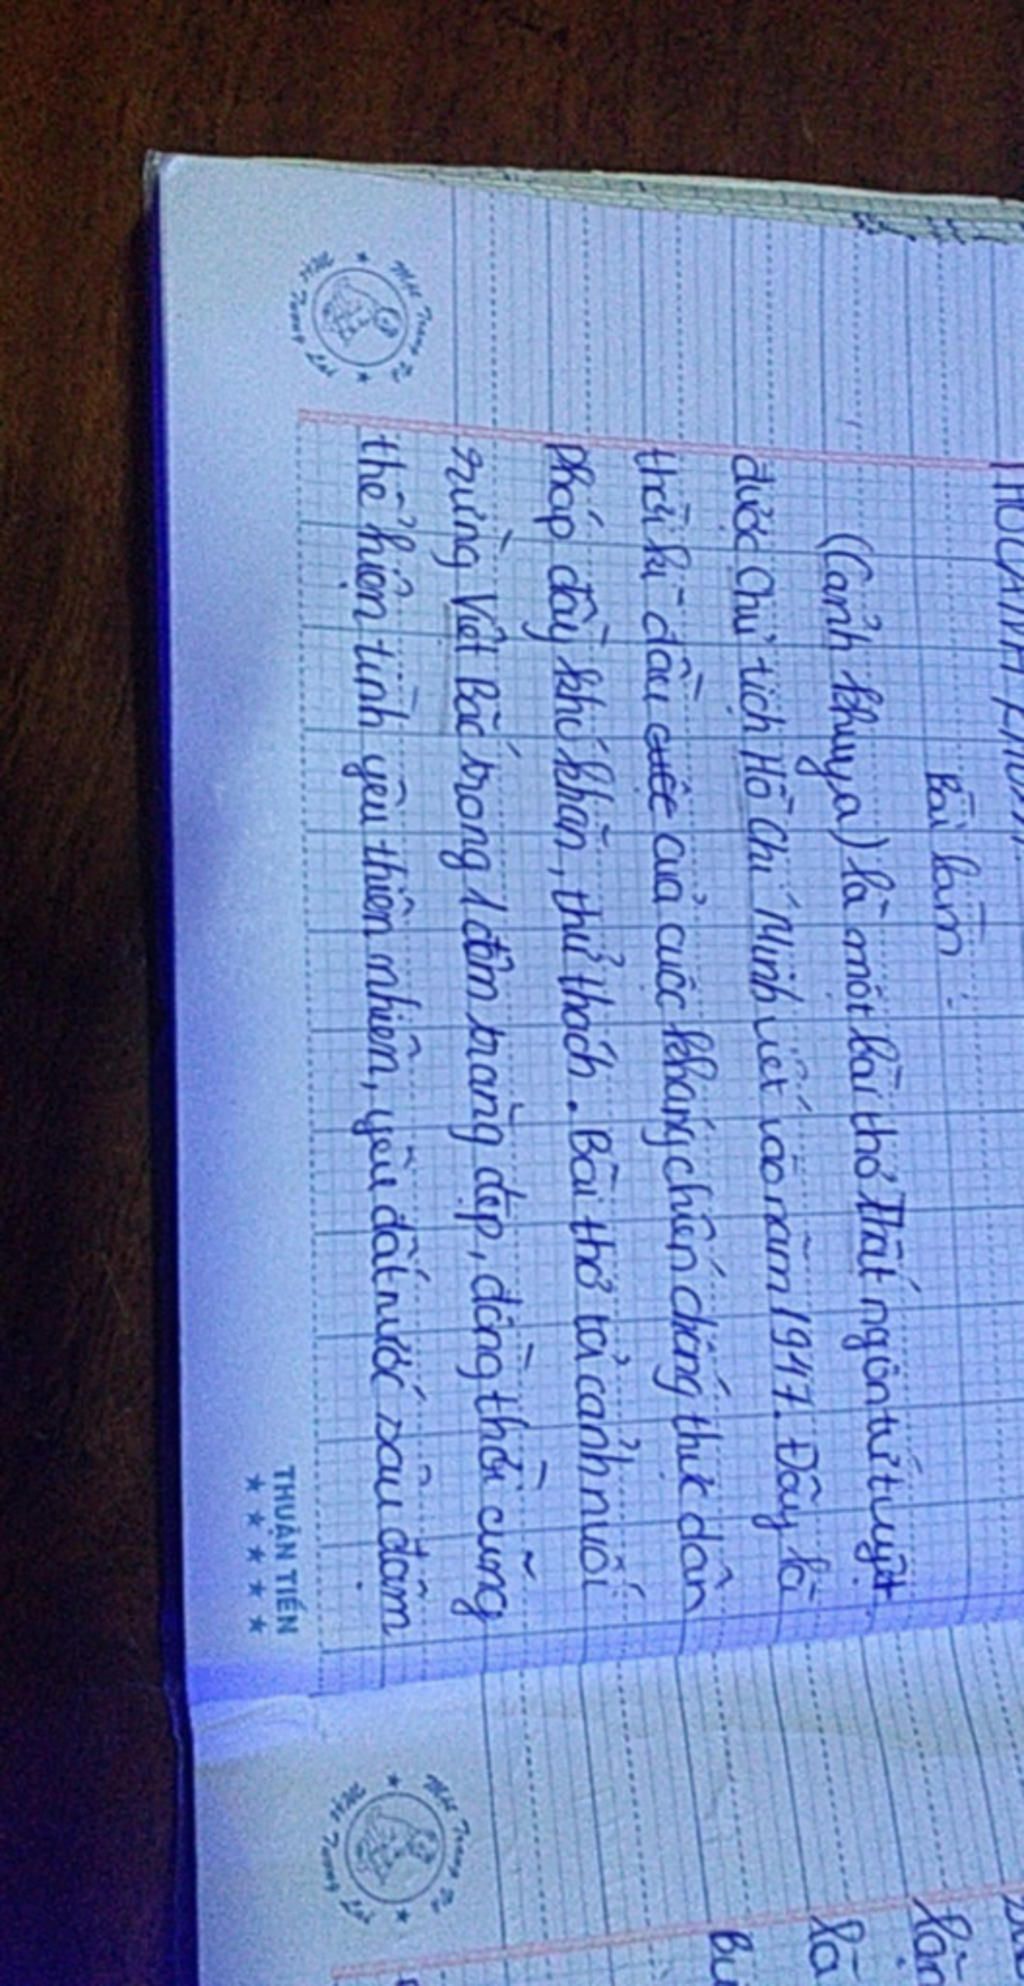 Bài làm:
(Cảnh khuya) là một bài thơ Thất ngôn tứ tuyệt
được Chủ tịch Hồ Chí Minh viết vào năm 1947. Đây là
thời kì đầu của cuộc kháng chiến chống thực dân
pháp đầy khó khăn, thử thách. Bài thơ tả cảnh nuối
rừng Việt Bắc trong 1 đêm trăng đẹp, đồng thời cũng
thể hiện tình yêu thiên nhiên, yêu đất nước sâu đậm
THUẬN TIẾN
là